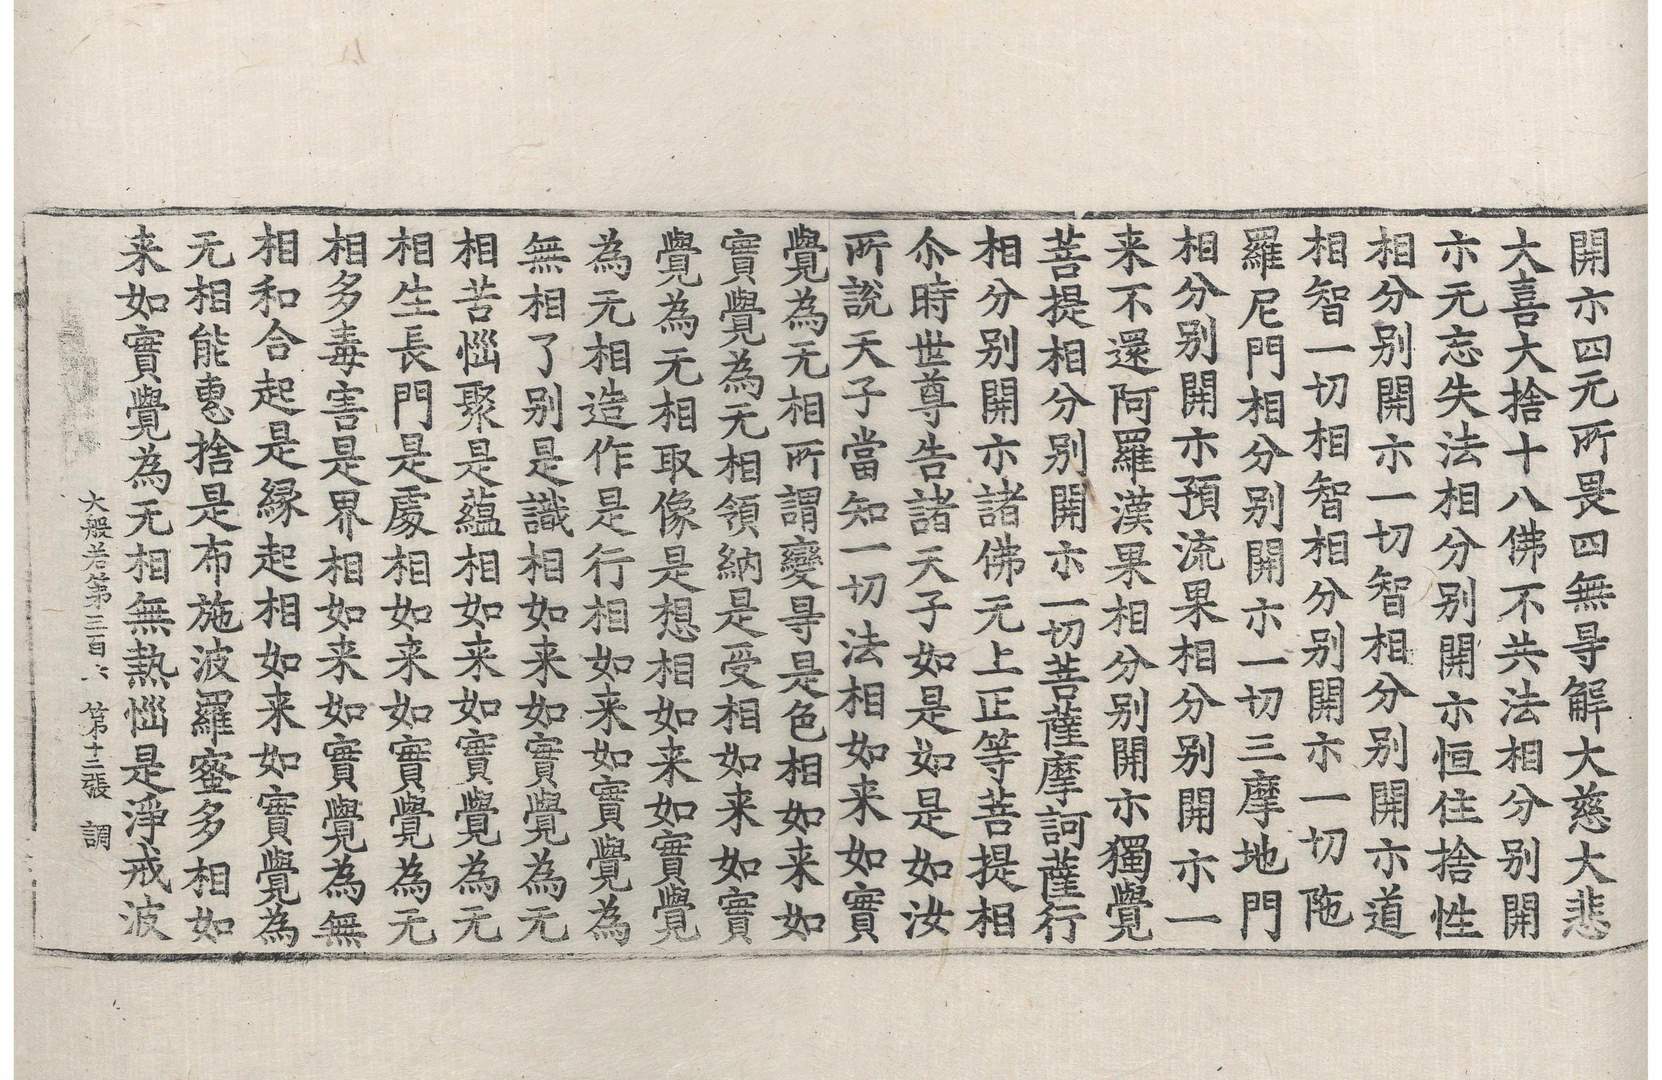 開示四无所畏四無㝵解大慈大悲
大喜大捨十八佛不共法相分别開
示无忘失法相分别開示恒住捨性
相分别開示一切智相分别開示道
相智一切相智相分别開示一切陁
羅尼門相分别開示一切三摩地門
相分别開示預流果相分别開示一
来不還阿羅漢果相分别開示獨覺
菩提相分别開示一切菩薩摩訶薩行
相分别開示諸佛无上正等菩提相
尒時世尊告諸天子如是如是如汝
所說天子當知一切法相如来如實
覺為无相所謂變㝵是色相如来如
實覺為无相領納是受相如来如實
覺為无相取像是想相如来如實覺
為无相造作是行相如来如實覺為
無相了别是識相如来如實覺為无
相苦惱聚是蘊相如来如實覺為无
相生長門是處相如来如實覺為无
相多毒害是界相如来如實覺為無
相和合起是縁起相如来如實覺為
无相能惠捨是布施波羅蜜多相如
来如實覺為无相無熱惱是淨戒波
大般若第三百六 第十二張 調